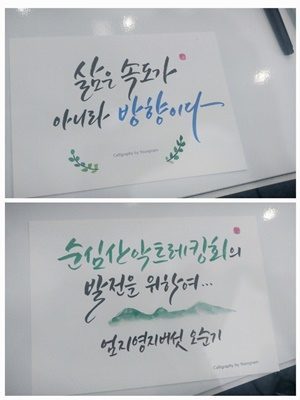 삶은 속도가
아니라 방향이다
Calligraphy by Youngnam
순심산악트레킹회의
발전을 위하여...
엄지영지버섯 오순기
Calligraphy by Youngnam